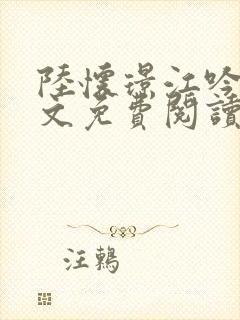 陸懷璟江吟
文免費閱讀
汪鶫